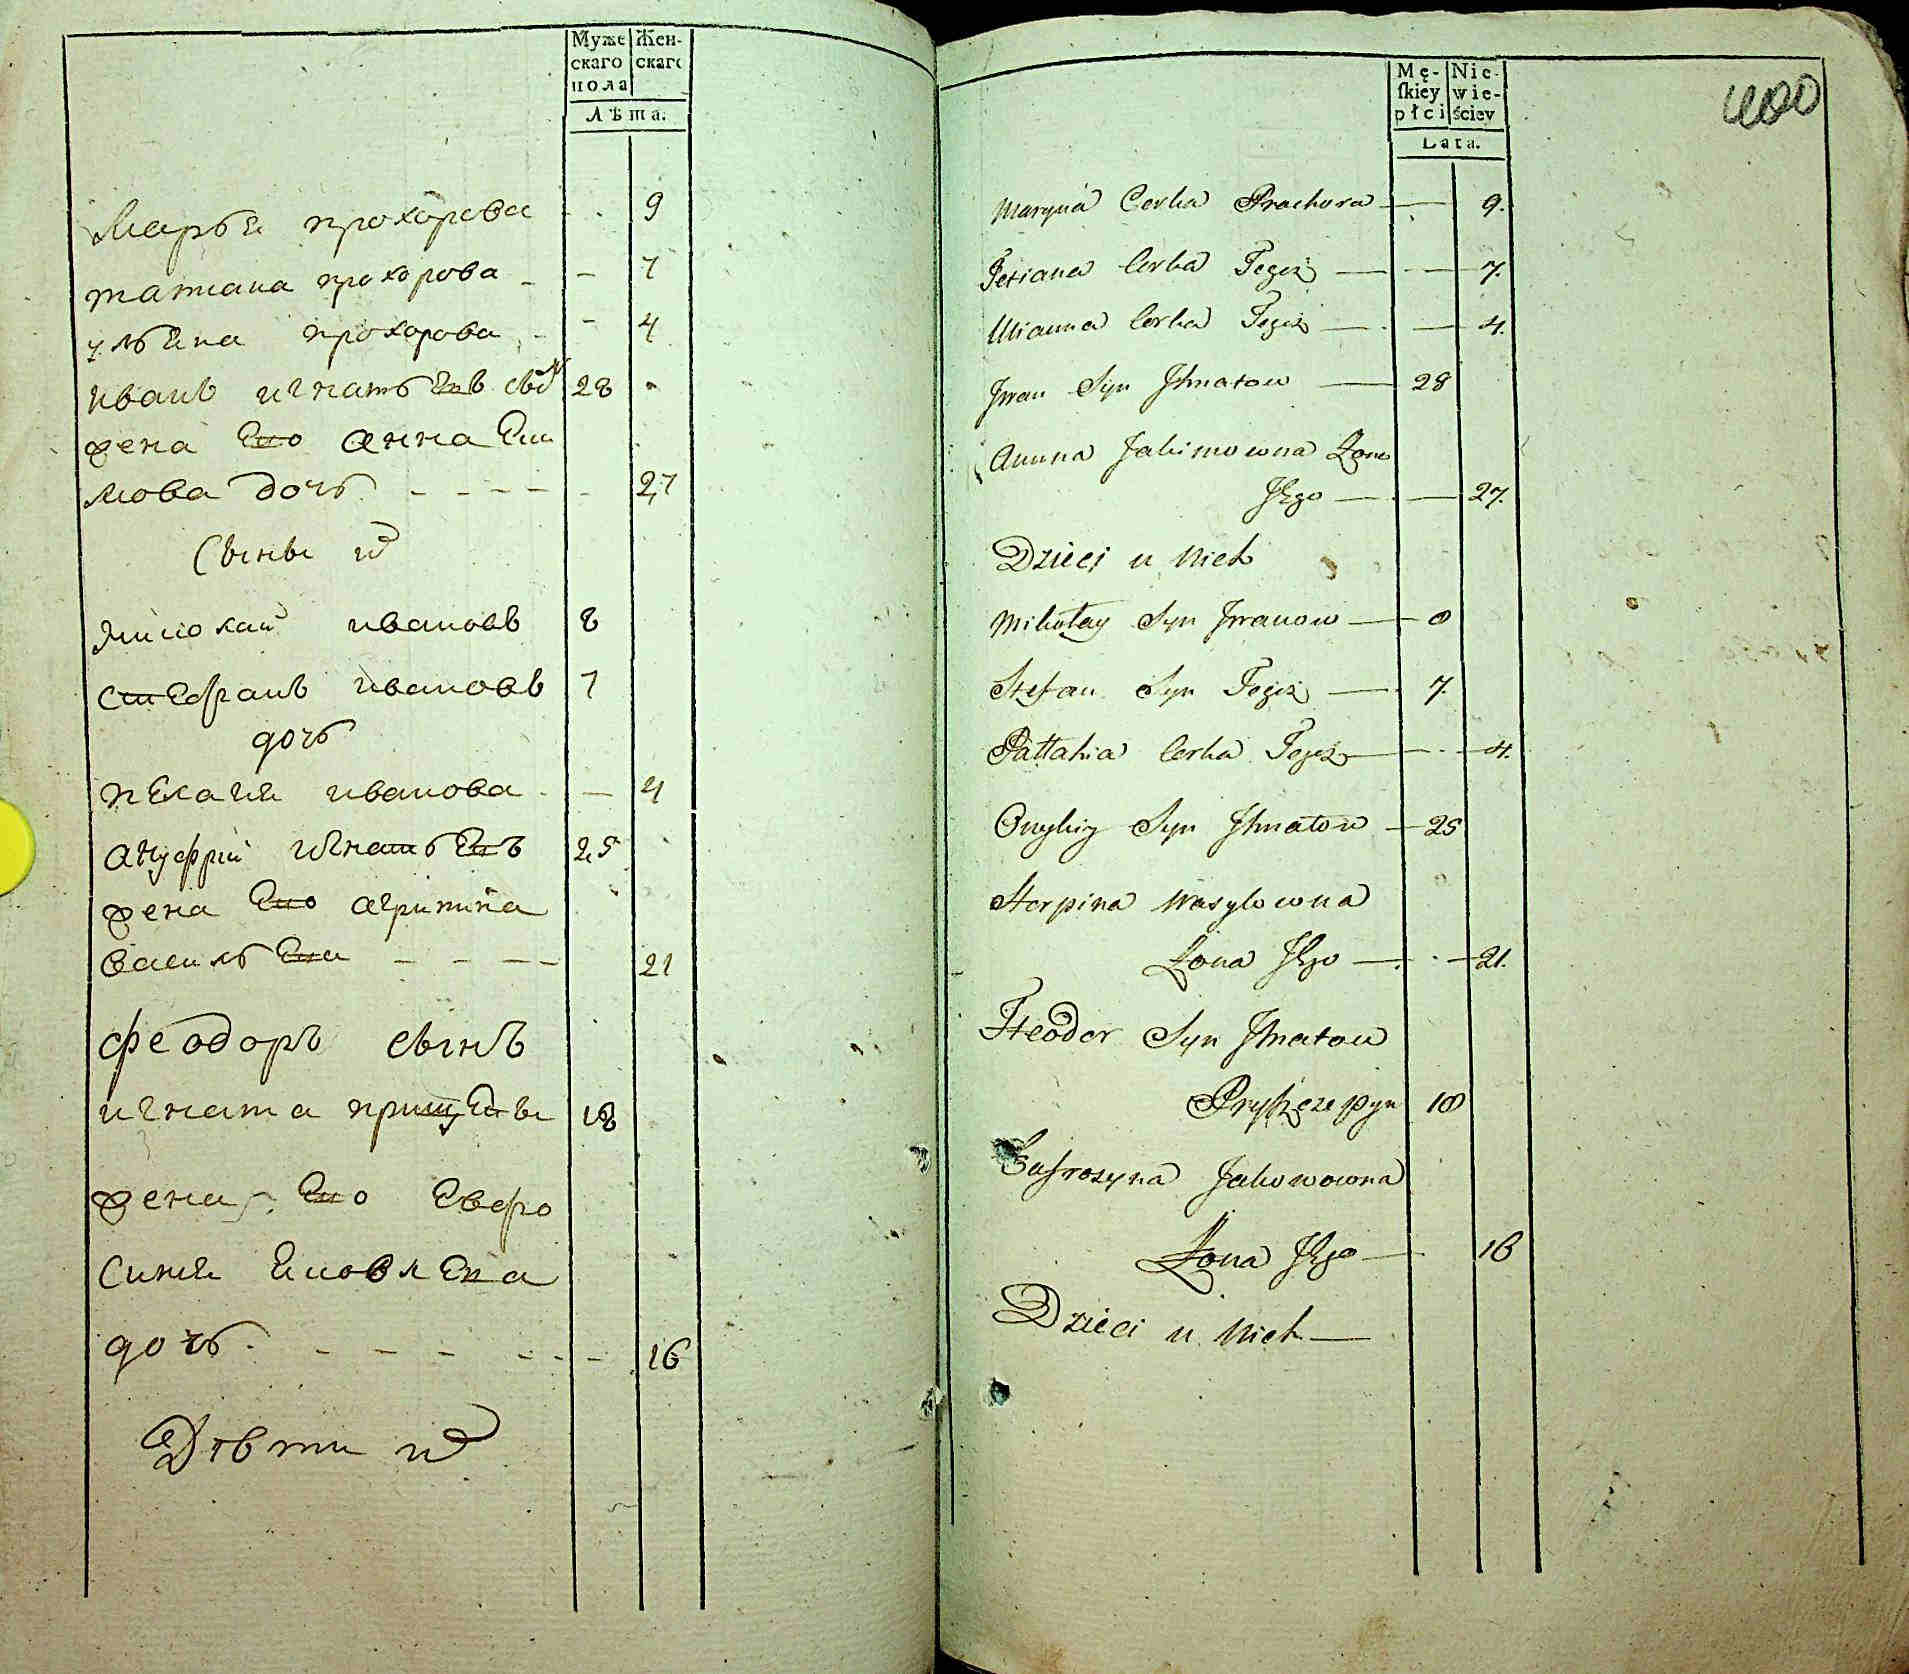 Муже Жен-
скаго скаго
пола
Лѣта.
Марья прохорова - 9
татиана прохорова - - 7
ульяна прохорова - - 4
иванъ игнатьевъ сынъ 28
жена Его анна Еки
мова дочь - - - - - 27
Сыны их
николай ивановъ 8
стефанъ ивановъ 7
дочь
пелагия иванова - - 4
ануфрий игнатьевъ 25
жена Его агрипина
васильева - - - - 21
Феодоръ сынъ
игната 18
жена Его Евфро
синия Яковлева
дочь - - - - - - 16
Дѣти их
Mę- Nie-
skiey wie-
płci ściey
Lata.
400
Maryna Corka Prachora — 9.
Tetiana Corka Tegoż — — 7.
Ulianna Corka Tegoż — — 4.
Jwan Syn Jhnatow — 28
Anna Jakimowna Żona
Jego — — 27.
Dzieci u Nich
Mikołay Syn Jwanow — 8
Stefan Syn Tegoż — 7.
Pałłahia Corka Tegoż — — 4.
Syn Jhnatow — 25
Horpina Wasylowna
Żona Jego — — 21.
Fteodor Syn Jhnatow
18
Eufrozyna Jakowowna
Żona Jego — 16
Dzieci u Nich —